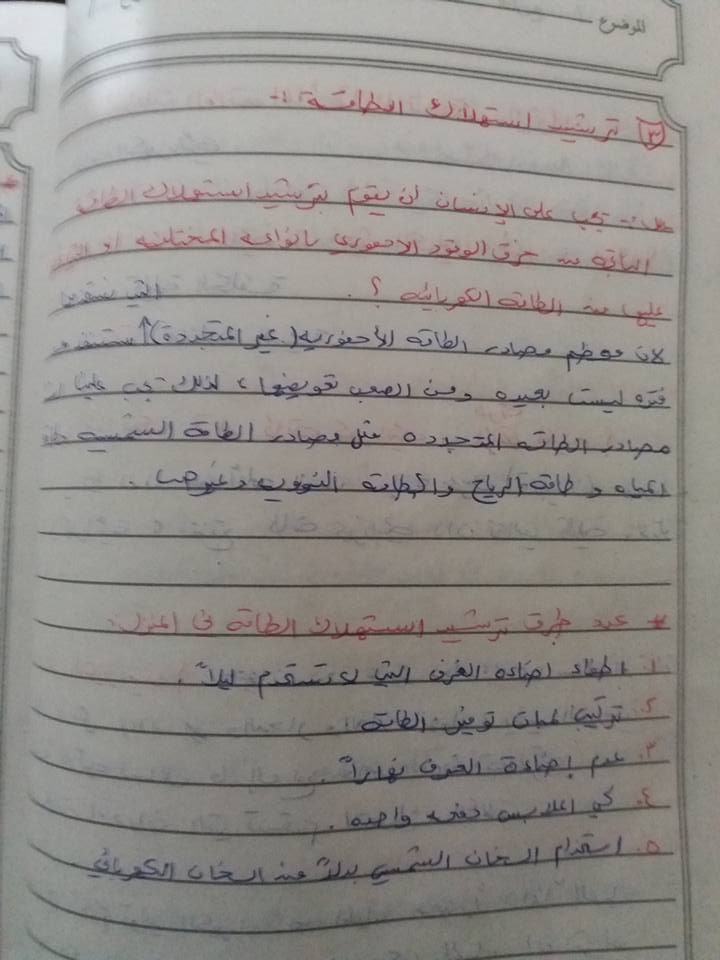 الموضوع
٣ ترشيد استهلاك الطاقة :-
علل :- يجب على الإنسان أن يقوم بترشيد استهلاك الطاقة
الناتجه من حرق الوقود الاحفوري بأنواعه المختلفه أو التي
عليها من الطاقة الكهربائيه ؟. التي نستخدمها
لان معظم مصادر الطاقه الأحفوريه (غير المتجددة) ↑ ستنفذ
فتره ليست بعيده ومن الصعب تعويضها ، لذلك يجب علينا
مصادر الطاقه المتجدده مثل مصادر الطاقة الشمسيه
المياه و طاقة الرياح والطاقه النوويه وغيرها .
* عدد طرق ترشيد استهلاك الطاقه فى المنزل:
١. اطفاء اضاءه الغرف التي لا تستخدم ليلاً .
٢. تركيب لمبات توفير الطاقه
٣. عدم إضاءة الغرف نهاراً .
٤. كي الملابس دفعه واحده .
٥. استخدام السخان الشمسي بدلاً من السخان الكهربائي